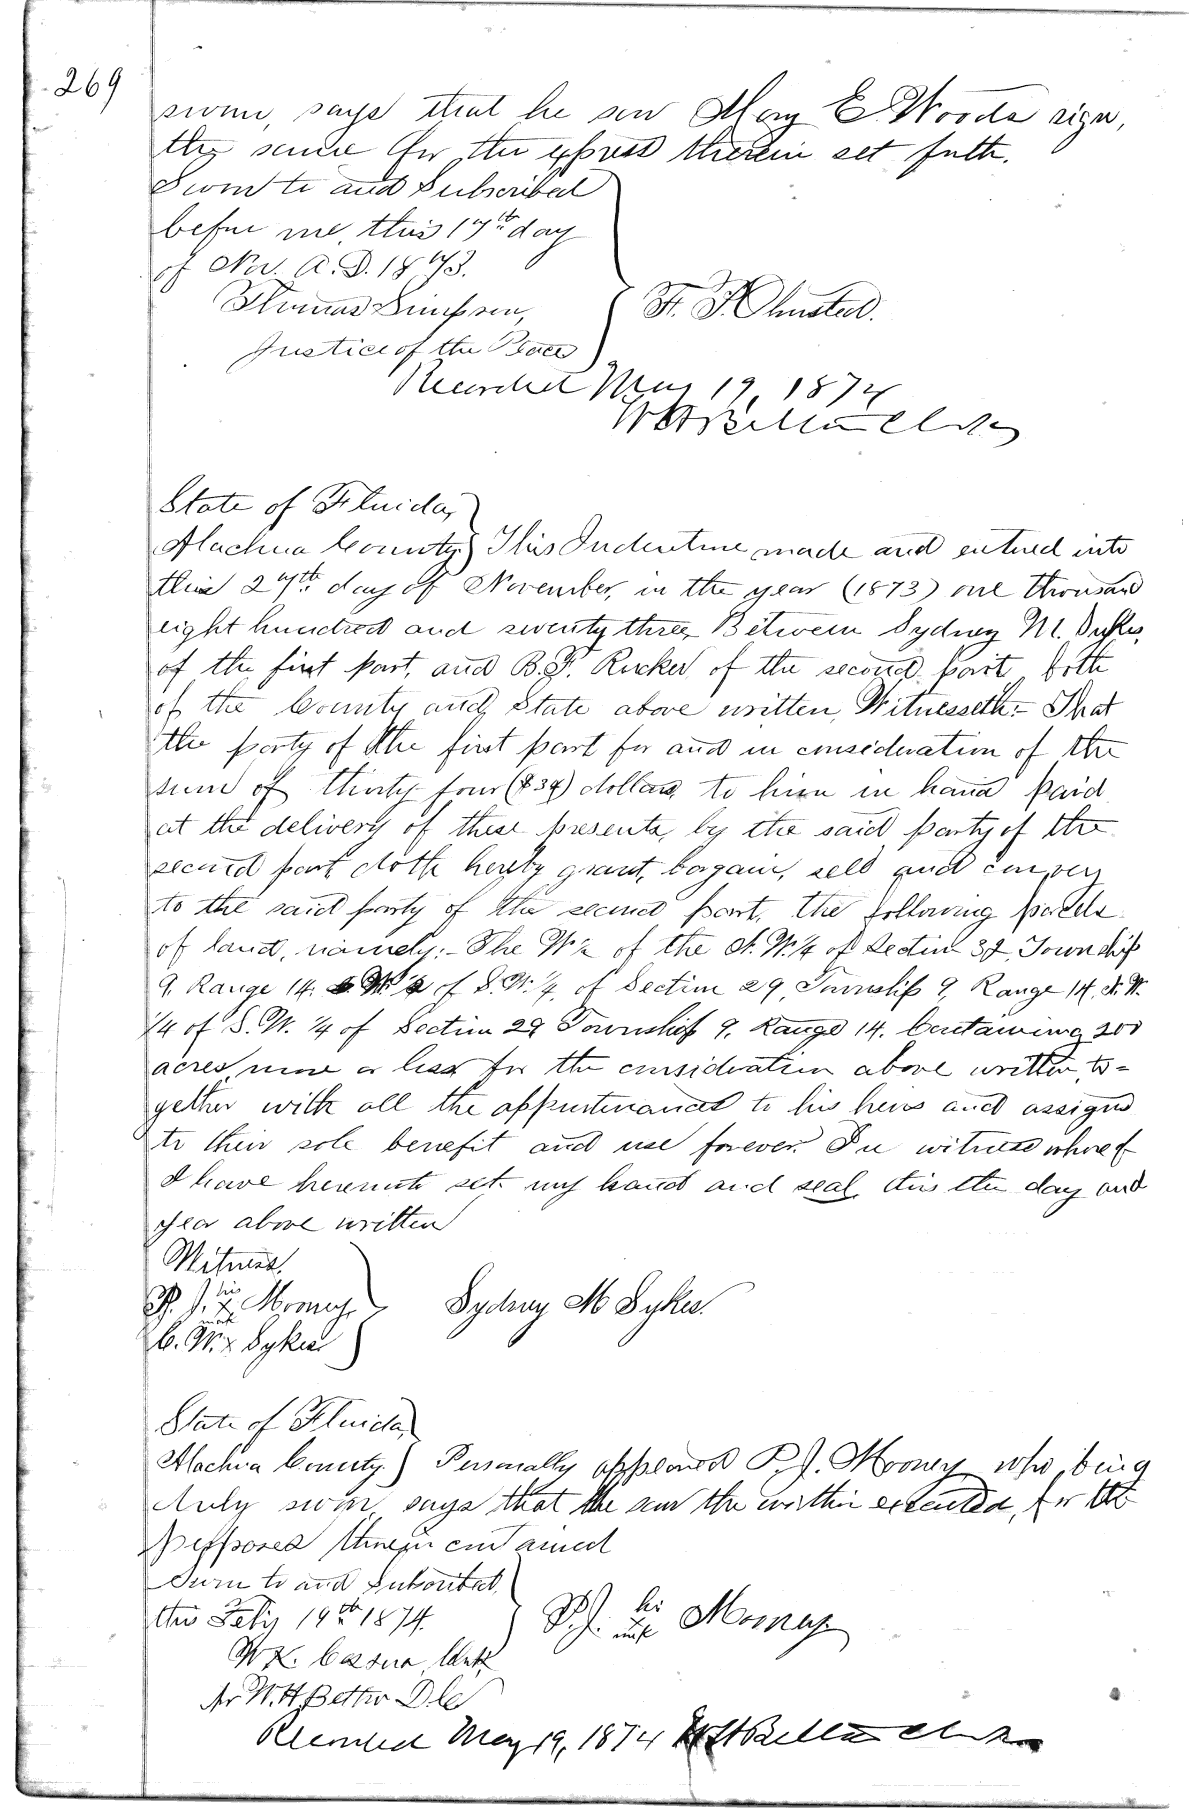 269
sworn, says that he saw Mary E. Woods sign,
the same for the express therein set forth.
Sworn to and Subscribed
before me, this 17th day
of Nov. A.D. 1873.
Thomas Simpson,
F. F. Olmsted.
Justice of the Peace
Recorded May 19, 1874
W H Belton Clerk
State of Florida,
Alachua County } This Indenture made and entered into
this 27th day of November, in the year (1873) one thousand
eight hundred and seventy three, Between Sydney M. Sykes,
of the first part, and B. F. Rucker of the second part, both
of the County and State above written, Witnesseth:- That
the party of the first part for and in consideration of the
sum of thirty four ($34) dollars, to him in hand paid
at the delivery of these presents, by the said party of the
second part doth hereby grant, bargain, sell and convey
to the said party of the second part, the following parcels
of land, namely:- The W½ of the N.W.¼ of Section 32, Township
9, Range 14. W ½ of S.W. ¼ of Section 29, Township 9, Range 14, N.W.
¼ of S.W. ¼ of Section 29 Township 9, Range 14. Containing 200
acres, more or less for the consideration above written, to-
gether with all the appurtenances to his heirs and assigns
to their sole benefit and use forever. In witness whereof
I have hereunto set my hand and seal this the day and
year above written
Witness,
P. J. his x mark Mooney,
Sydney M Sykes.
C. W. x Sykes
State of Florida,
Alachua County } Personally appeared P. J. Mooney who, being
duly sworn, says that he saw the within executed, for the
purposes therein contained
Sworn to and Subscribed
this Feby 19th 1874.
P. J. his x mark Mooney.
W. K. Clerk
Pr W. H. Belton D.C.
Recorded May 19, 1874 W H Belton Clerk